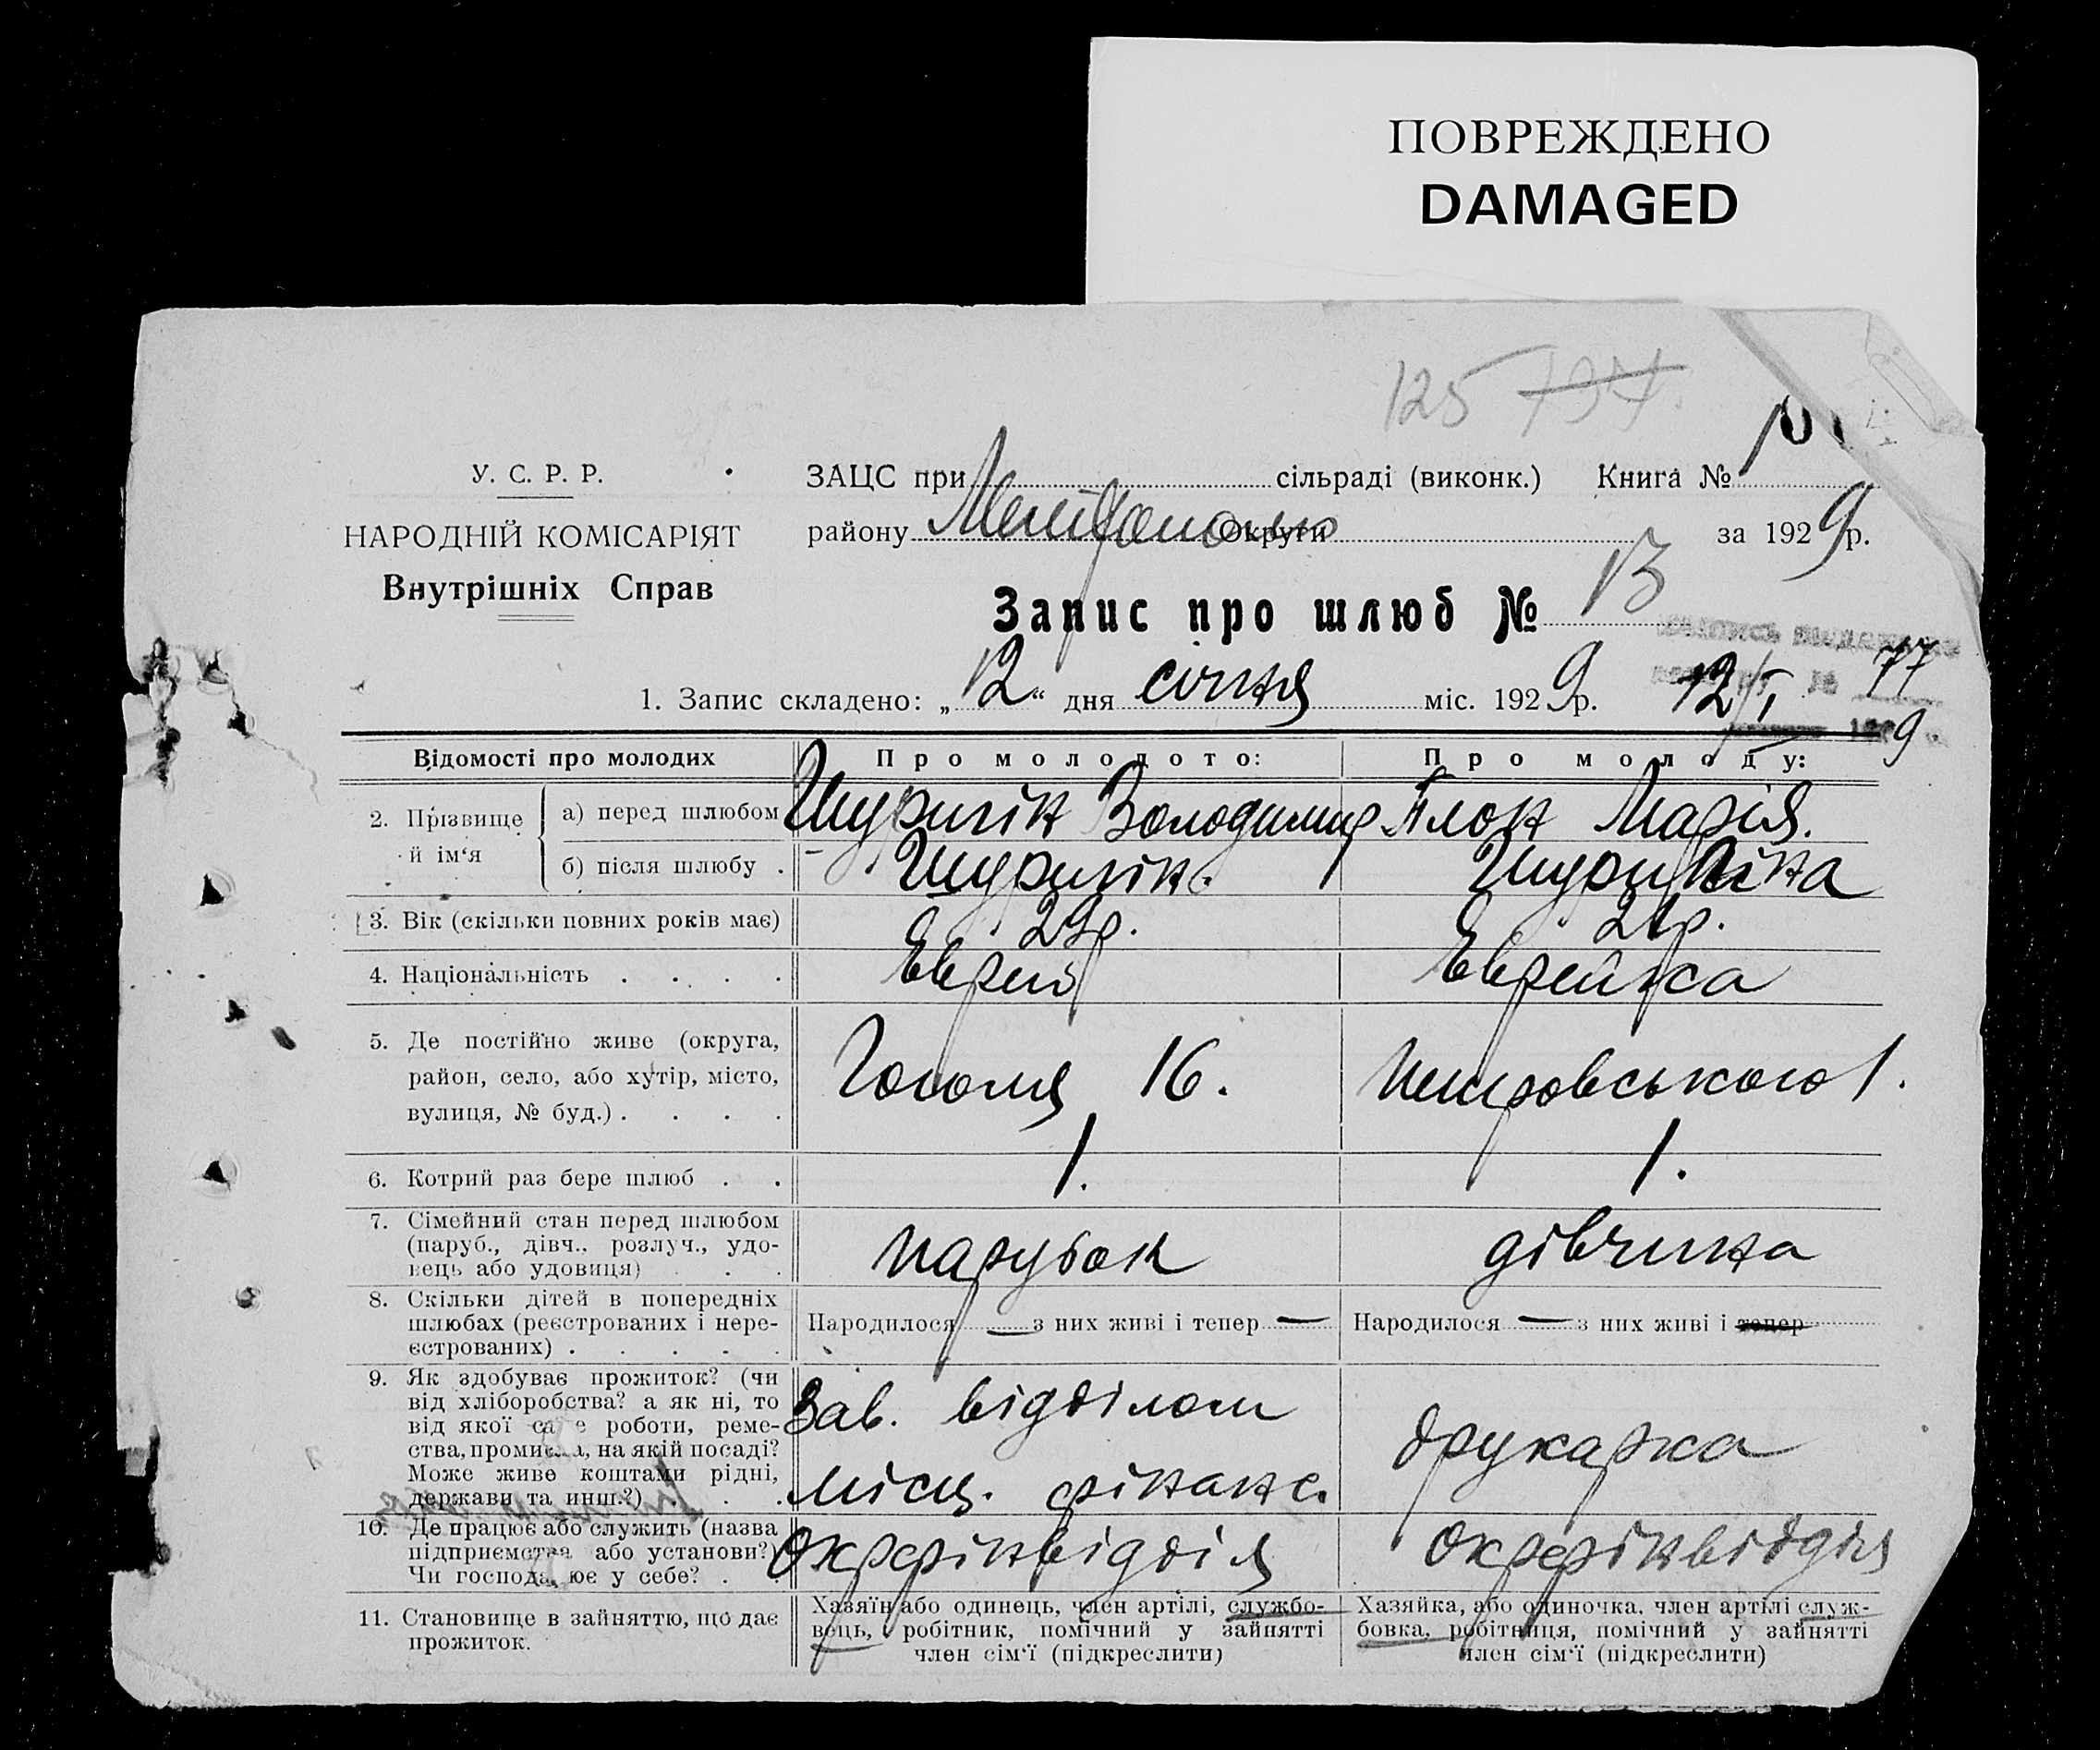 ПОВРЕЖДЕНО
DAMAGED
125 737.
У. С. Р. Р.
НАРОДНІЙ КОМІСАРІЯТ
Внутрішніх Справ
ЗАЦС при сільраді (виконк.) Книга № 1
району Мелітополь Округи за 1929 р.
Запис про шлюб № 13
1. Запис складено: „12“ дня січня міс. 1929 р. 12/I 77
9
Відомості про молодих
Про молодого:
Про молоду:
2. Прізвище й ім‘я
а) перед шлюбом
Володимир
Марія.
б) після шлюбу .
3. Вік (скільки повних років має)
29р.
21р.
4. Національність . . . .
Еврей
Еврейка
5. Де постійно живе (округа,
район, село, або хутір, місто,
вулиця, № буд.) . . . .
Гоголя 16.
Петровського 1.
6. Котрий раз бере шлюб . .
1.
1.
7. Сімейний стан перед шлюбом
(паруб., дівч., розлуч., удо-
вець або удовиця) . .
парубок
дівчина
8. Скільки дітей в попередніх
шлюбах (реєстрованих і нере-
єстрованих) . . . . .
Народилося — з них живі і тепер —
Народилося — з них живі і тепер
9. Як здобуває прожиток? (чи
від хліборобства? а як ні, то
від якої са е роботи, реме-
ства, промисла, на якій посаді?
Може живе коштами рідні,
держави та инш.?) . . .
Зав. відділом
місц. фінанс.
друкарка
10. Де працює або служить (назва
підприємства або установи?)
Чи господа ює у себе? . .
Окрфінвідділ
Окрфінвідділ
11. Становище в зайняттю, що дає
прожиток.
Хазяїн або одинець, член артілі, службо-
вець, робітник, помічний у зайнятті
член сім‘ї (підкреслити)
Хазяйка, або одиночка, член артілі служ-
бовка, робітниця, помічний у зайнятті
член сім‘ї (підкреслити)